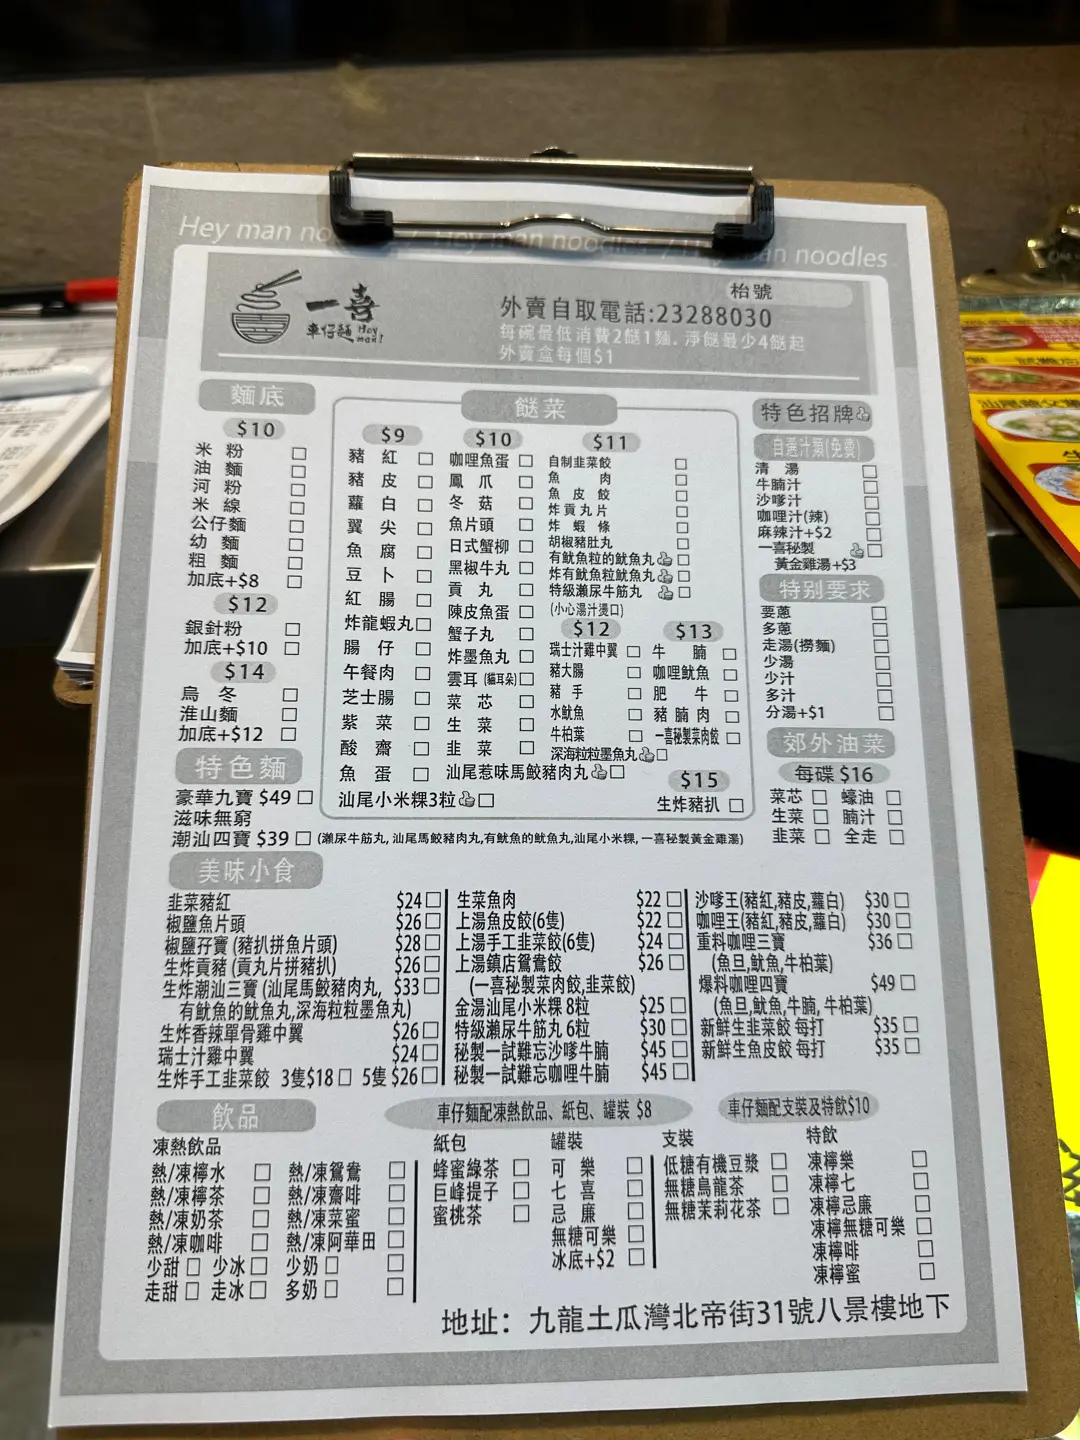 Hey man no / Hey man noodles / Hey man noodles
枱號
一喜
車仔麵 Hey man!
外賣自取電話:23288030
每碗最低消費2餸1麵. 淨餸最少4餸起
外賣盒每個$1
麵底
$10
米粉
油麵
河粉
米線
公仔麵
幼麵
粗麵
加底+$8
$12
銀針粉
加底+$10
$14
烏冬
淮山麵
加底+$12
特色麵
豪華九寶 $49
滋味無窮
潮汕四寶 $39 (瀨尿牛筋丸, 汕尾馬鮫豬肉丸,有魷魚的魷魚丸,汕尾小米粿, 一喜秘製黃金雞湯)
餸菜
$9
豬紅
豬皮
蘿白
翼尖
魚腐
豆卜
紅腸
炸龍蝦丸
腸仔
午餐肉
芝士腸
紫菜
酸齋
魚蛋
汕尾小米粿3粒
$10
咖哩魚蛋
鳳爪
冬菇
魚片頭
日式蟹柳
黑椒牛丸
貢丸
陳皮魚蛋
蟹子丸
炸墨魚丸
雲耳 (貓耳朵)
菜芯
生菜
韭菜
汕尾惹味馬鮫豬肉丸
$11
自制韭菜餃
魚肉
魚皮餃
炸貢丸片
炸蝦條
胡椒豬肚丸
有魷魚粒的魷魚丸
炸有魷魚粒魷魚丸
特級瀨尿牛筋丸
(小心湯汁燙口)
$12
瑞士汁雞中翼
豬大腸
豬手
水魷魚
牛柏葉
深海粒粒墨魚丸
$13
牛腩
咖哩魷魚
肥牛
豬腩肉
一喜秘製菜肉餃
$15
生炸豬扒
特色招牌
自選汁類(免費)
清湯
牛腩汁
沙嗲汁
咖哩汁(辣)
麻辣汁+$2
一喜秘製
黃金雞湯+$3
特别要求
要蔥
多蔥
走湯(撈麵)
少湯
少汁
多汁
分湯+$1
郊外油菜
每碟 $16
菜芯 蠔油
生菜 腩汁
韭菜 全走
美味小食
韭菜豬紅 $24
椒鹽魚片頭 $26
椒鹽孖寶 (豬扒拼魚片頭) $28
生炸貢豬 (貢丸片拼豬扒) $26
生炸潮汕三寶 (汕尾馬鮫豬肉丸, $33
有魷魚的魷魚丸,深海粒粒墨魚丸)
生炸香辣單骨雞中翼 $26
瑞士汁雞中翼 $24
生炸手工韭菜餃 3隻$18 5隻 $26
生菜魚肉 $22
上湯魚皮餃(6隻) $22
上湯手工韭菜餃(6隻) $24
上湯鎮店鴛鴦餃 $26
(一喜秘製菜肉餃,韭菜餃)
金湯汕尾小米粿 8粒 $25
特級瀨尿牛筋丸 6粒 $30
秘製一試難忘沙嗲牛腩 $45
秘製一試難忘咖哩牛腩 $45
沙嗲王(豬紅,豬皮,蘿白) $30
咖哩王(豬紅,豬皮,蘿白) $30
重料咖哩三寶 $36
(魚旦,魷魚,牛柏葉)
爆料咖哩四寶 $49
(魚旦,魷魚,牛腩, 牛柏葉)
新鮮生韭菜餃 每打 $35
新鮮生魚皮餃 每打 $35
飲品
凍熱飲品
熱/凍檸水 熱/凍鴛鴦
熱/凍檸茶 熱/凍齋啡
熱/凍奶茶 熱/凍菜蜜
熱/凍咖啡 熱/凍阿華田
少甜 少冰 少奶
走甜 走冰 多奶
車仔麵配凍熱飲品、紙包、罐裝 $8
紙包
蜂蜜綠茶
巨峰提子
蜜桃茶
罐裝
可樂
七喜
忌廉
無糖可樂
冰底+$2
車仔麵配支裝及特飲$10
支裝
低糖有機豆漿
無糖烏龍茶
無糖茉莉花茶
特飲
凍檸樂
凍檸七
凍檸忌廉
凍檸無糖可樂
凍檸啡
凍檸蜜
地址： 九龍土瓜灣北帝街31號八景樓地下